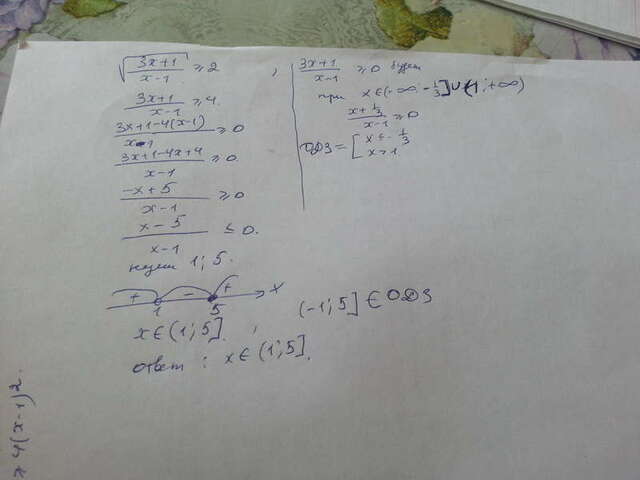 √(3x+1)/(x-1) ≥ 2 ,
(3x+1)/(x-1) ≥ 4.
(3x+1-4(x-1))/(x-1) ≥ 0
(3x+1-4x+4)/(x-1) ≥ 0
(-x+5)/(x-1) ≥ 0
(x-5)/(x-1) ≤ 0.
нули 1; 5.
+ - + x
1 5
x ∈ (1; 5]. ,
ответ : x ∈ (1; 5].
(3x+1)/(x-1) ≥ 0 будет
при x ∈ (-∞; -1/3] ∪ (1; +∞)
(x+1/3)/(x-1) ≥ 0
ОДЗ = [ x ≤ -1/3
x > 1
(-1; 5] ∈ ОДЗ
4(x-1)2.